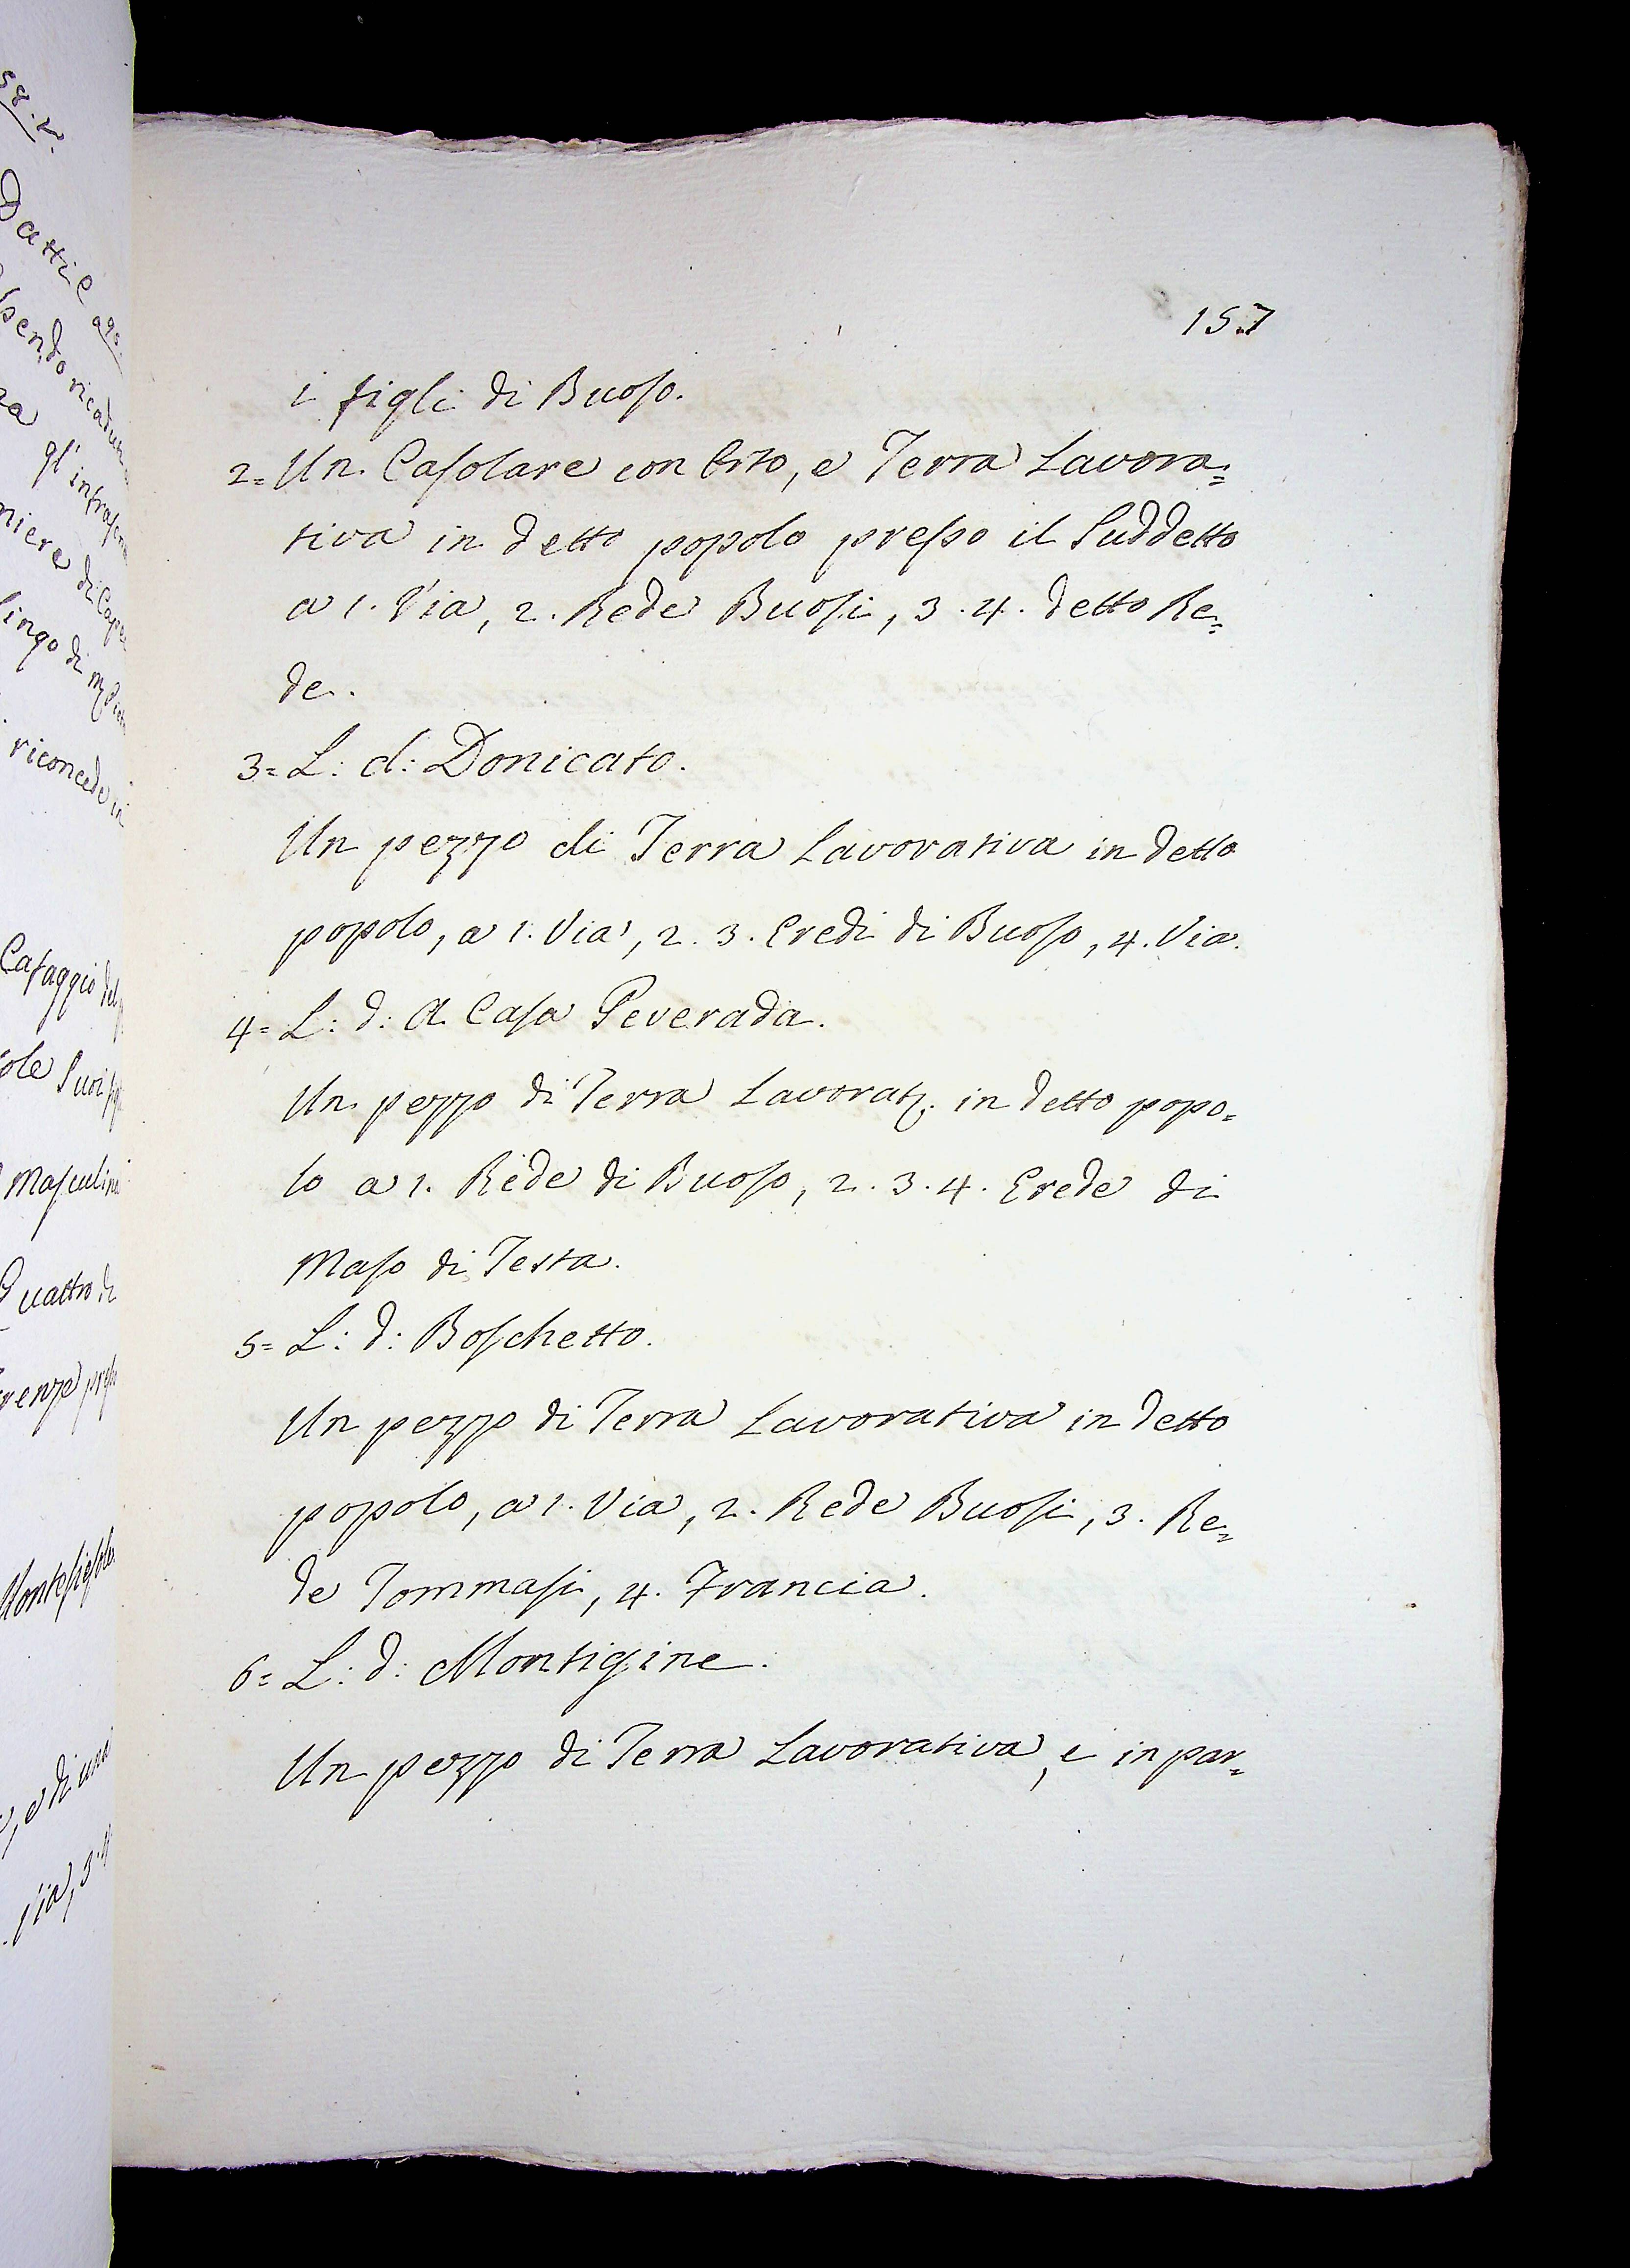 157
i figli di Buoso.
2= Un Casolare con Orto, e Terra Lavora=
tiva in detto popolo presso il Suddetto
a 1. Via, 2. Rede Buosi, 3. 4. detto Re=
de.
3= L: d: Donicato.
Un pezzo di Terra Lavorativa in detto
popolo, a 1. Via, 2. 3. Eredi di Buoso, 4. Via.
4= L: d: A Casa Peverada.
Un pezzo di Terra Lavorat. in detto popo=
lo a 1. Rede di Buoso, 2. 3. 4. Erede di
Maso di Testa.
5= L: d: Boschetto.
Un pezzo di Terra Lavorativa in detto
popolo, a 1. Via, 2. Rede Buosi, 3. Re=
de Tommasi, 4. Francia.
6= L: d: Montigine.
Un pezzo di Terra Lavorativa, e in par=